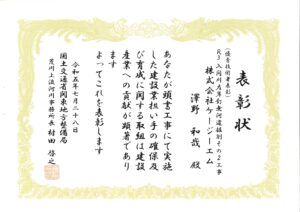 表彰状
(優良技術者表彰)
R3入間川左岸釘無河道掘削その2工事
株式会社ケージーエム
澤野 和哉 殿
あなたが頭書工事にて実施
した建設業担い手の確保及
び育成に関する取組は建設
産業への貢献が顕著であり
ます
よってこれを表彰します
令和五年七月二十八日
国土交通省関東地方整備局
荒川上流河川事務所長 村田 啓之